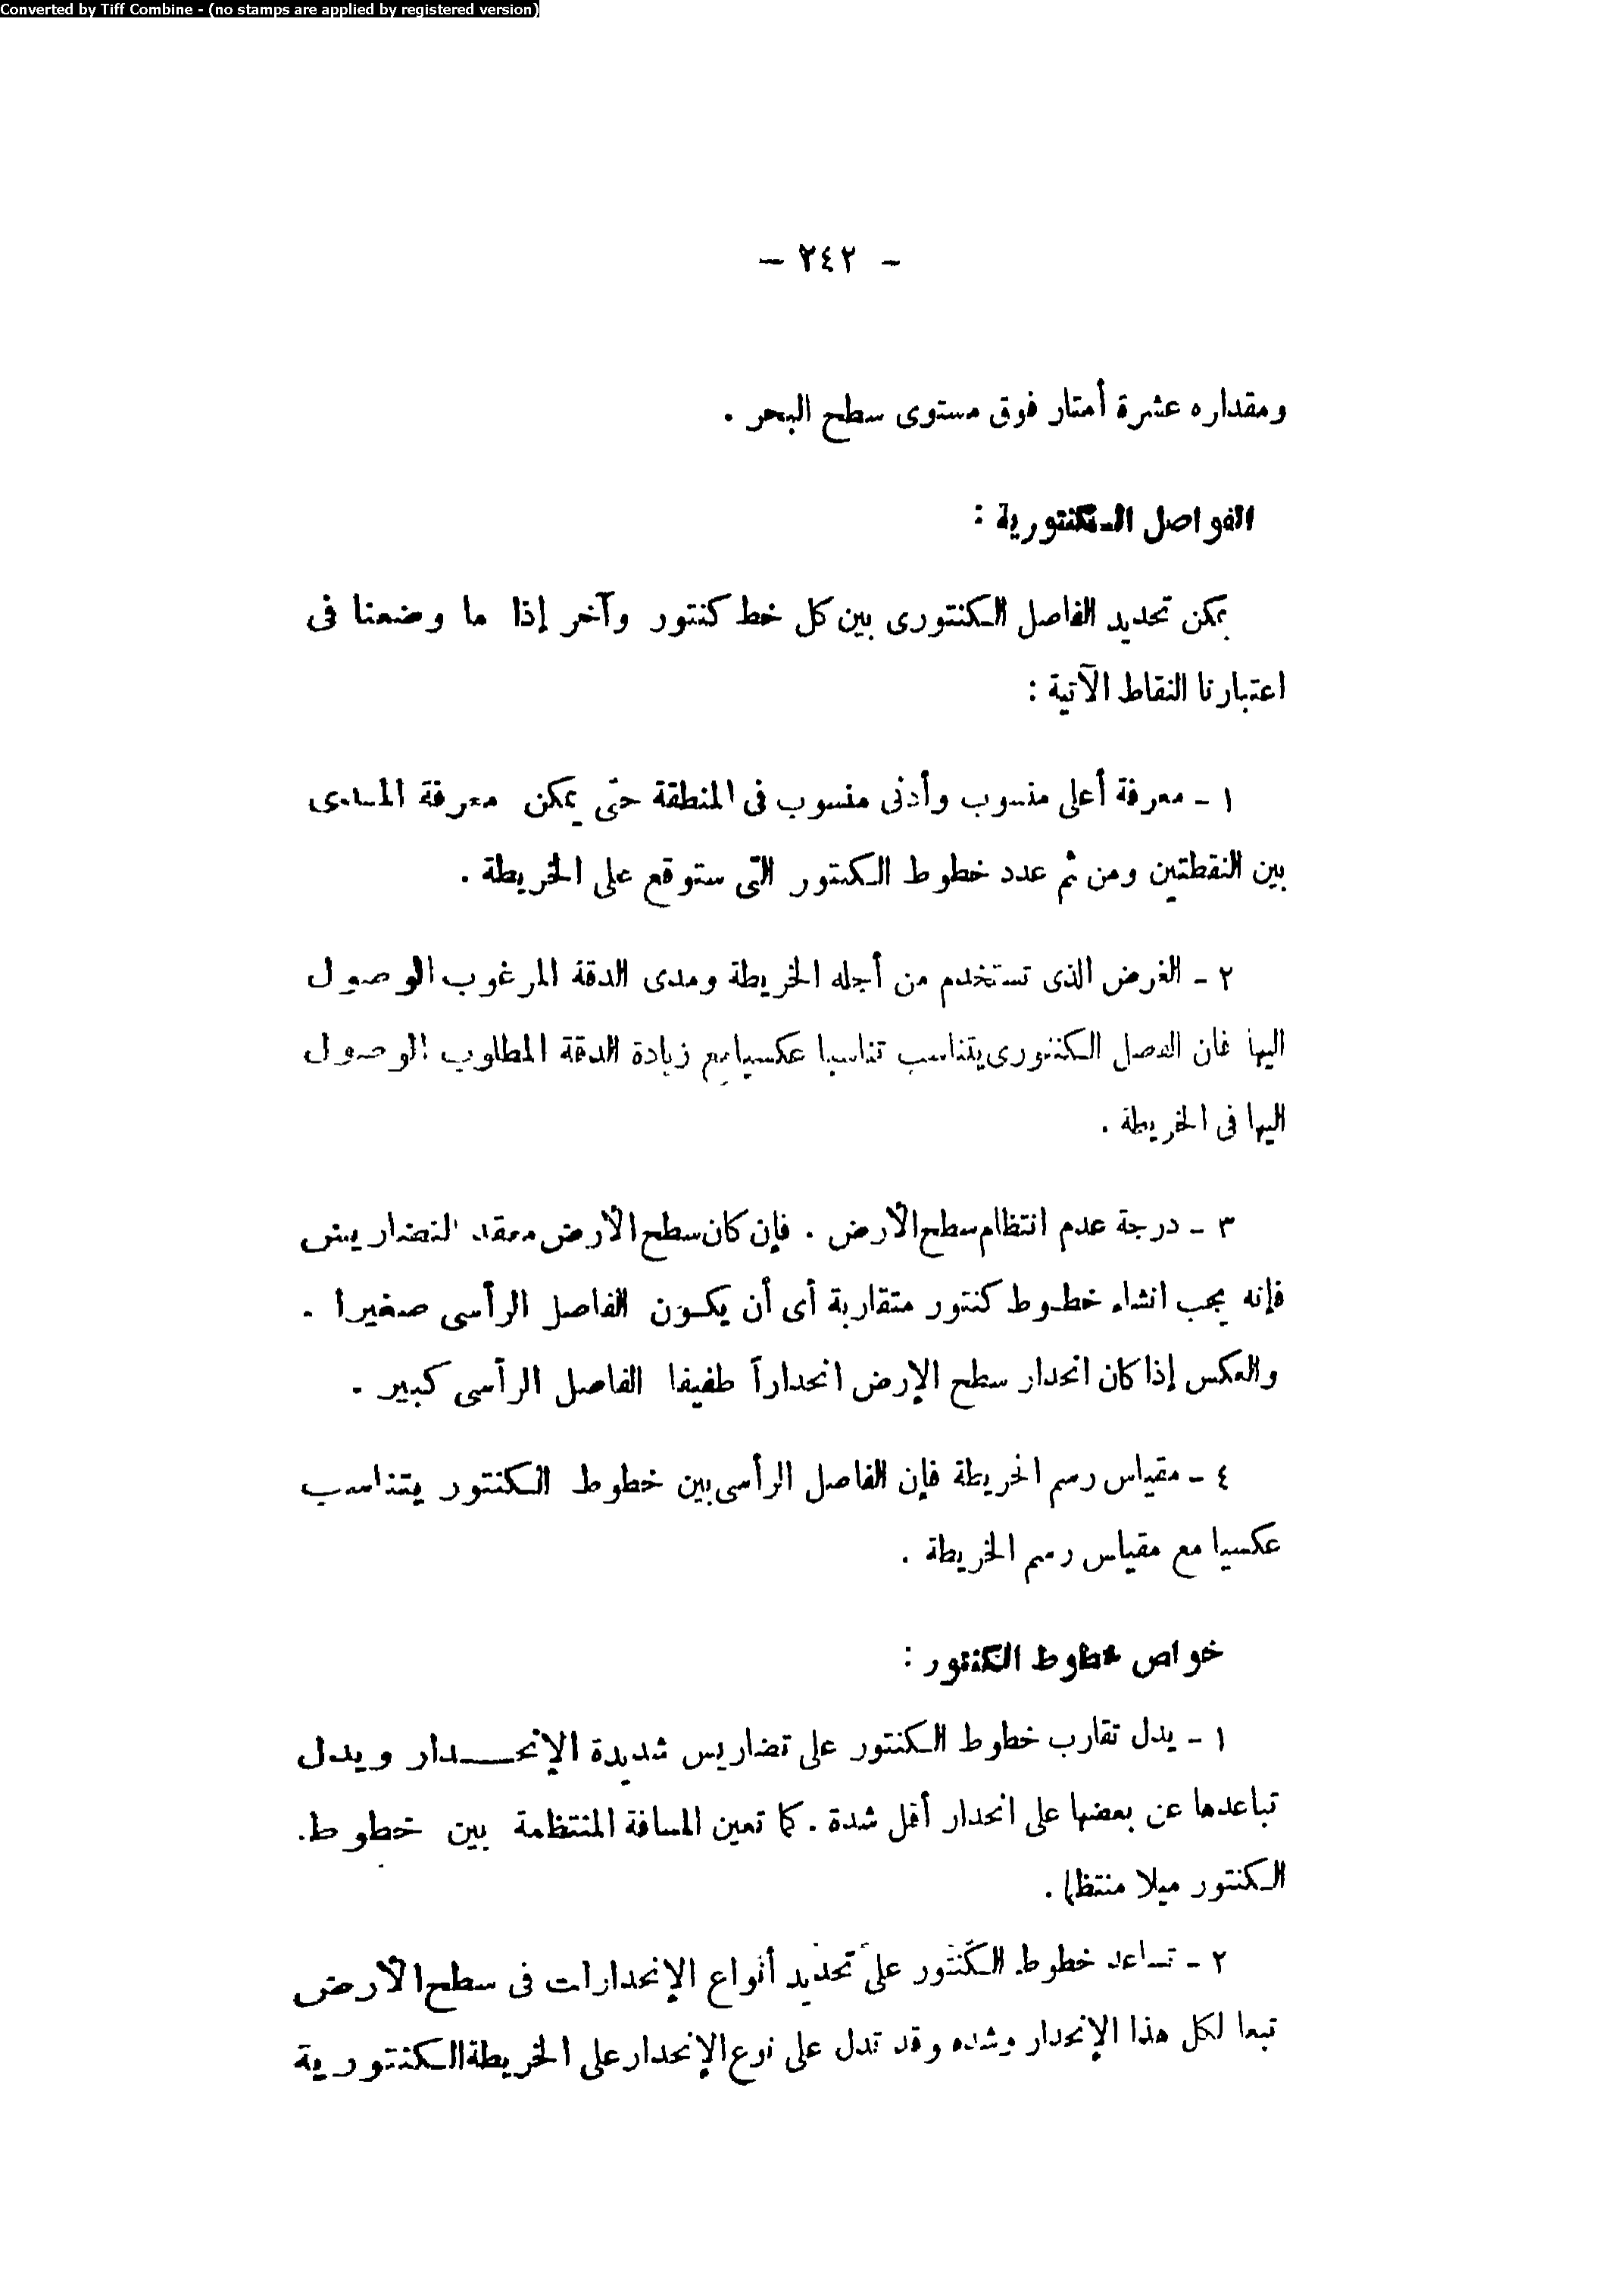 Converted by Tiff Combine - (no stamps are applied by registered version)
- ٢٤٢ -
ومقداره عشرة أمتار فوق مستوى سطح البحر .
الفواصل الكنتورية :
يمكن تحديد الفاصل الكنتورى بين كل خط كنتور وآخر إذا ما وضعنا فى
اعتبارنا النقاط الآتية :
١ - معرفة أعلى منسوب وأدنى منسوب فى المنطقة حتى يمكن معرفة المدى
بين النقطتين ومن ثم عدد خطوط الكنتور التى ستوقع على الخريطة .
٢ - الغرض الذى تستخدم من أجله الخريطة ومدى الدقة المرغوب الوصول
اليها فان الفصل الكنتورى يتناسب تناسبا عكسيا مع زيادة الدقة المطلوب الوصول
اليها فى الخريطة .
٣ - درجة عدم انتظام سطح الأرض . فإن كان سطح الأرض معقد التضاريس
فإنه يجب انشاء خطوط كنتور متقاربة أى أن يكون الفاصل الرأسى صغيرا .
والعكس إذا كان انحدار سطح الإرض انحداراً طفيفا الفاصل الرأسى كبير .
٤ - مقياس رسم الخريطة فإن الفاصل الرأسى بين خطوط الكنتور يتناسب
عكسيا مع مقياس رسم الخريطة .
خواص خطوط الكنتور :
١ - يدل تقارب خطوط الكنتور على تضاريس شديدة الإنحدار ويدل
تباعدها عن بعضها على انحدار أقل شدة . كما تعين المسافة المنتظمة بين خطوط
الكنتور ميلا منتظما .
٢ - تساعد خطوط الكنتور على تحديد أنواع الإنحدارات فى سطح الأرض
تبعا لكل هذا الإنحدار وشده وقد تدل على نوع الإنحدار على الخريطة الكنتورية